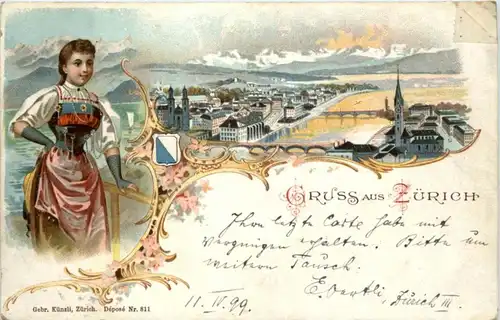 GRUSS AUS ZÜRICH
Ihre letzte Carte habe mit
vergnügen erhalten. Bitte um
weitern Tausch.
E. Oertli, Zürich III
11. IV. 99.
Gebr. Künzli, Zürich. Déposé Nr. 811